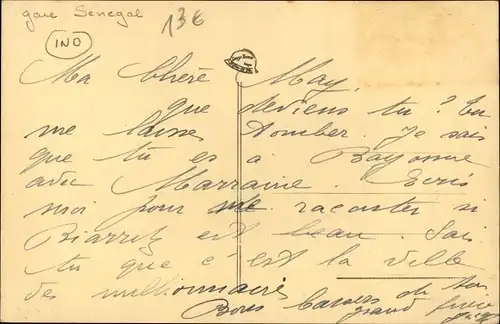 gare Senegal
13€
IND
Ma Chère May,
que deviens tu ? tu
me laisses tomber. Je sais
que tu es à Bayonne
avec Marraine. Ecris
moi pour me raconter si
Biarritz est beau. Sais
tu que c'est la ville
des millionnaires
Bons baisers de ton
grand frère